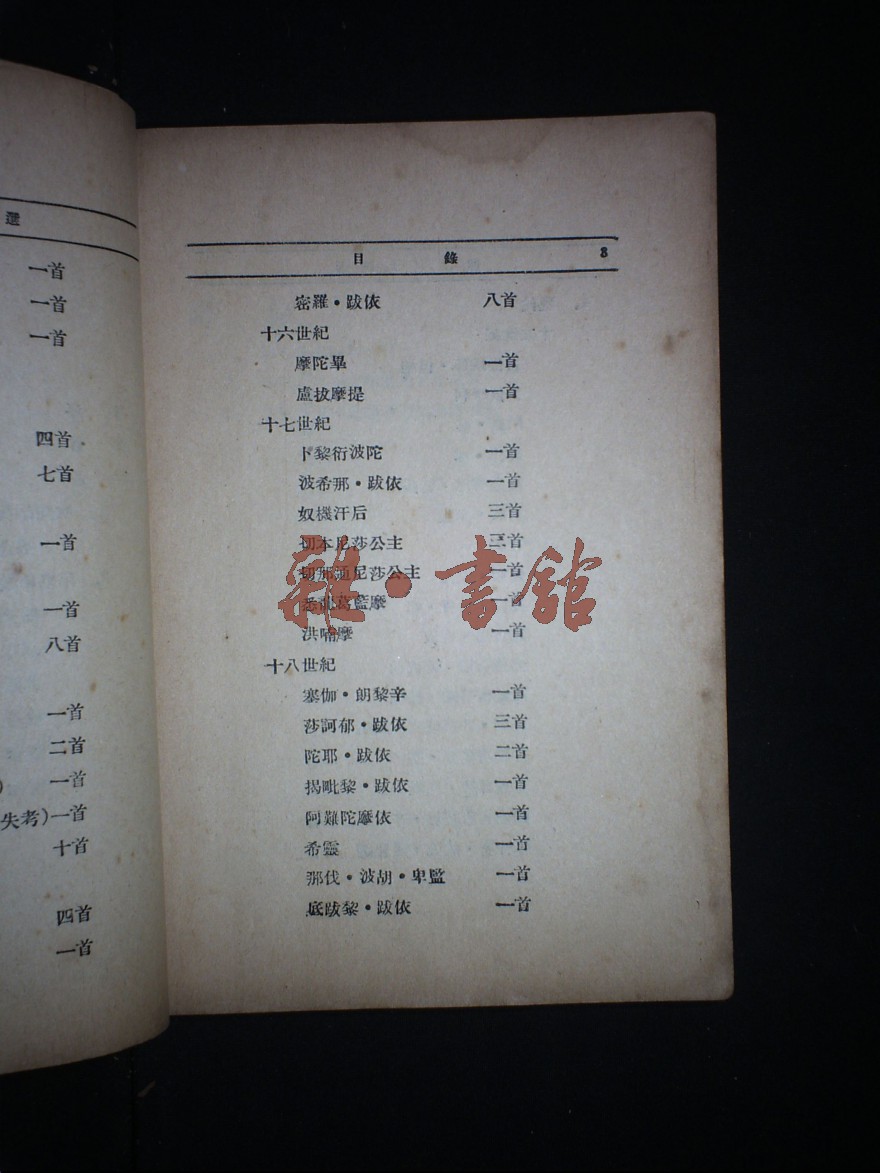 選
一首
一首
一首
四首
七首
一首
一首
八首
一首
二首
)一首
失考)一首
十首
四首
一首
目錄 3
密羅・跋依 八首
十六世紀
摩陀畢 一首
盧拔摩提 一首
十七世紀
卜黎衍波陀 一首
波希那・跋依 一首
奴機汗后 三首
切本尼莎公主 三首
切那通尼莎公主 一首
葛藍摩 一首
洪喃摩 一首
十八世紀
塞伽・朗黎辛 一首
莎訶郁・跋依 三首
陀耶・跋依 二首
揭毗黎・跋依 一首
阿難陀摩依 一首
希靈 一首
那伐・波胡・卑監 一首
底跋黎・跋依 一首
雜・書館